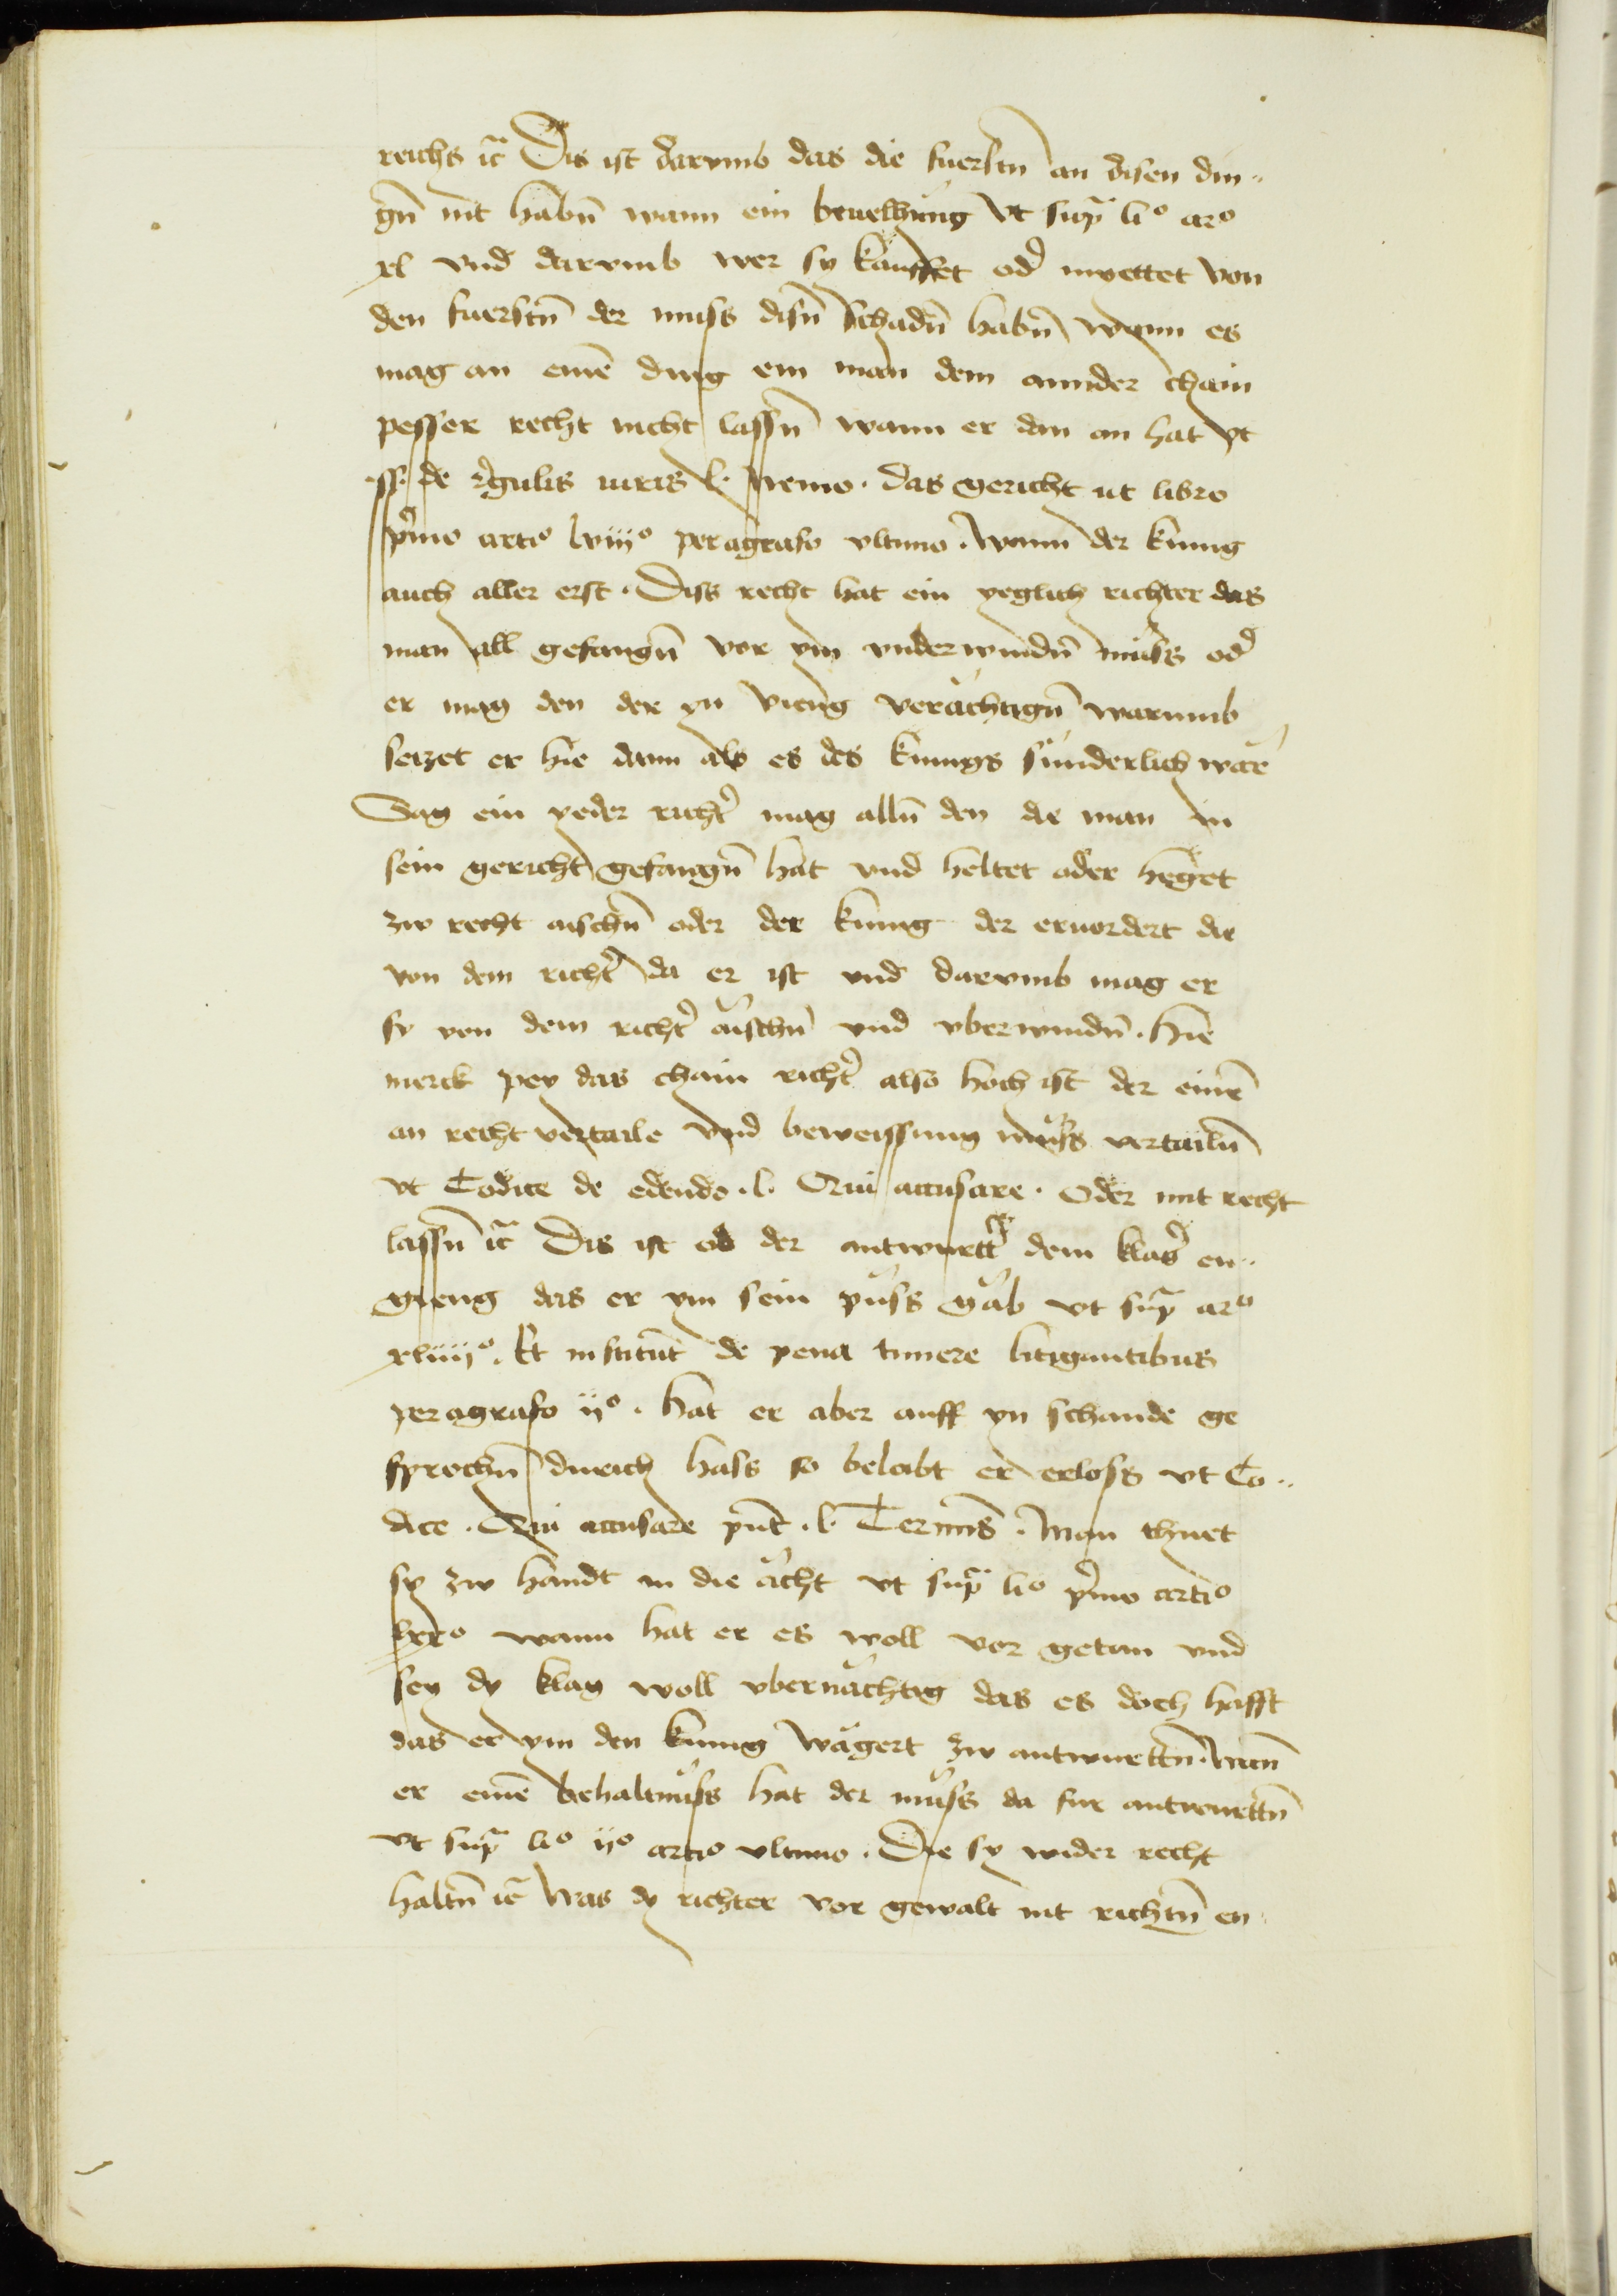 reichs ꝛc̃ Dis ist darvmb das die fuerstn̄ an disen din¨
gn̄ nit habn̄ wann ein beuelhung vt sup̃ liº arº
xl vnd darvmb wer sy kauffet od̓ mvettet von
den fuerstn̄ der muss disn̄ schadn̄ habn̄ wann es
mag an eine̅ ding ein man dem annder chain
pesser recht nicht lassn̄ wann er dan an hat vt
.ff. de r̓gulis iuris .l. nemo . das gericht ut libro
p̓mo artiº lviijº peragrafo vltimo . wann der kunig
auch aller erst . Diss recht hat ein yeglich richter das
man all gefangn̄ vor ym vnderwindn̄ muͤss od̓
er mag den der yn vieng veraͤchtign̄ warumb
setzet er hie dann als es des kunigs sunderlich waͤr
Sag ein yeder richt̓ mag alln̄ den die man in
sein gericht gefangn̄ hat vnd heltet oder heget
zw recht aischn̄ oder der kunig der eruordert die
von dem richt̓ da er ist vnd darvmb mag er
sy von dem richt̓ aͤischn̄ vnd vberwindn̄ . hie
merck pey das chain richt̓ also hoch ist der eine̅
an recht vertaile vnd beweissung muͤss vertailn̄
vt Codice de edendo . l. Qui accusare . Oder mit recht
lassn̄ ꝛc̃ Dis ist ob der antwurtt̓ dem klag̓ en¨
gieng das er ym sein puͤss gaͤb vt sup̃ arº
xliiijº . Et institut̄ de pena timere litigantibus
peragrafo ijº . hat er aber auff yn schande ge
sprochn̄ durich hass so beleibt er erloss vt Co¨
dice . Qui accusare pn̄t . l. Termis̄ . Man thuet
sy zw handt in die aͤcht vt sup̃ liº p̓mo artiº
lxxº wann hat er es woll vor getan vnd
sey dy klag woll vbernaͤchtig das es doch hafft
das er ym den kunig waͤgert zw antwurttn̄ . wan̄
er eine̅ behaltnuͤss hat der muͤss da fur antwurttn̄
vt sup̃ liº ijº artiº vltimo . Die sy wider recht
haltn̄ ꝛc̃ was dy richter vor gewalt nit richtn̄ en¨